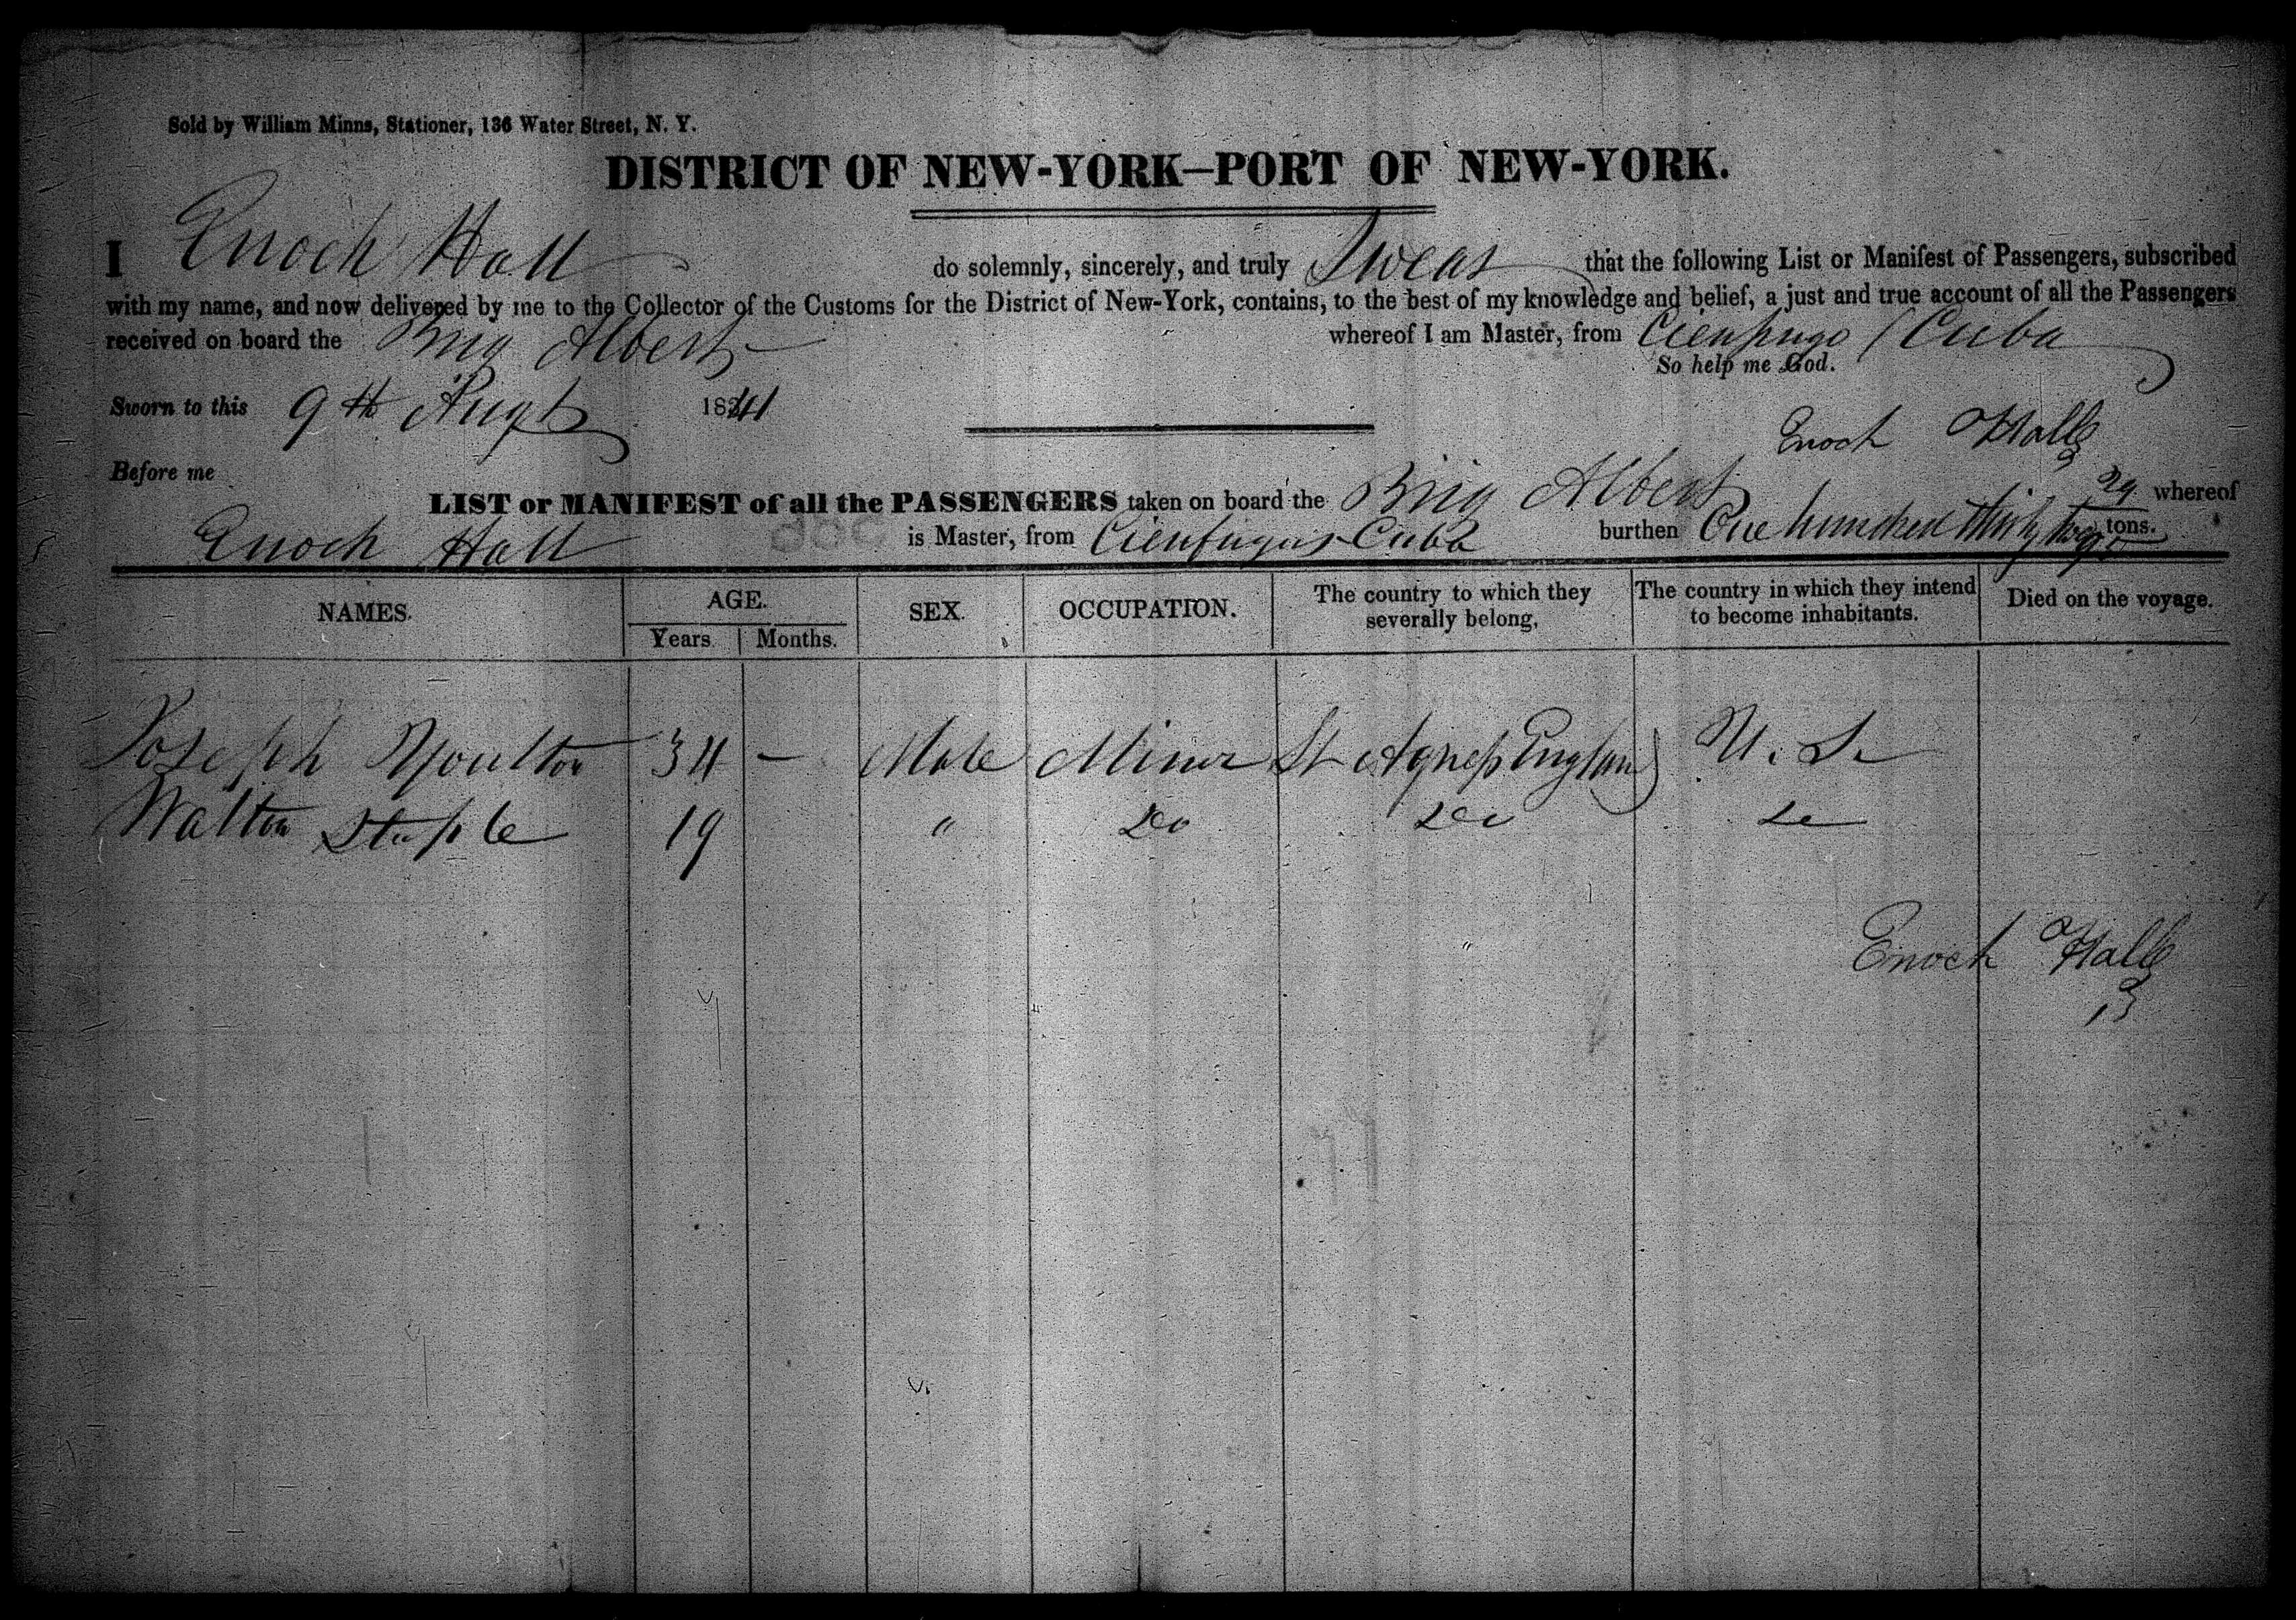 Sold by William Minns, Stationer, 136 Water Street, N. Y.
DISTRICT OF NEW-YORK—PORT OF NEW-YORK.
I Enoch Hall do solemnly, sincerely, and truly Swear that the following List or Manifest of Passengers, subscribed
with my name, and now delivered by me to the Collector of the Customs for the District of New-York, contains, to the best of my knowledge and belief, a just and true account of all the Passengers
received on board the Brig Albert whereof I am Master, from Cienfugo / Cuba
So help me God.
Sworn to this 9th Augt 1841
Enoch Hall
Before me
LIST or MANIFEST of all the PASSENGERS taken on board the Brig Albert whereof
Enoch Hall is Master, from Cienfugus Cuba burthen One hundred thirty two tons.
NAMES. AGE. SEX. OCCUPATION. The country to which they severally belong, The country in which they intend to become inhabitants. Died on the voyage.
Years Months.
Joseph Moulton 34 — Male Miner St Agness England U. S.
Walton Staple 19 " Do Do Do
Enoch Hall